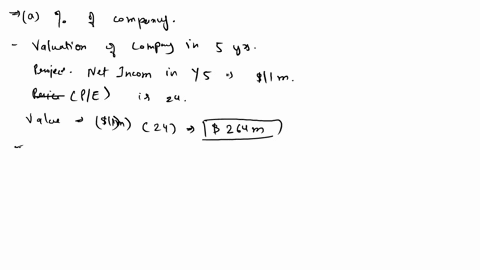 →(a) % of company.
- Valuation of Company in 5 yrs.
Project. Net Incom in Y5 → $11m.
(P/E) is 24.
Value → ($11m) (24) → $264m